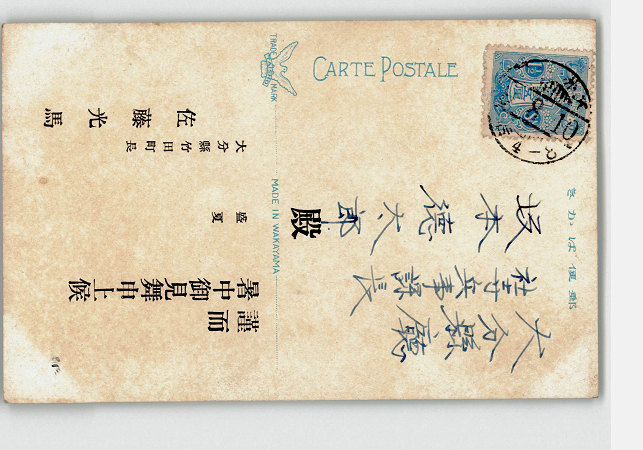 CARTE POSTALE
郵便ばかき
大分縣廳
社寺兵事課長
坂本徳太郎
殿
TRADE MARK
MADE IN WAKAYAMA
謹而
暑中御見舞申上候
盛夏
大分縣竹田町長
佐藤光馬
8 10